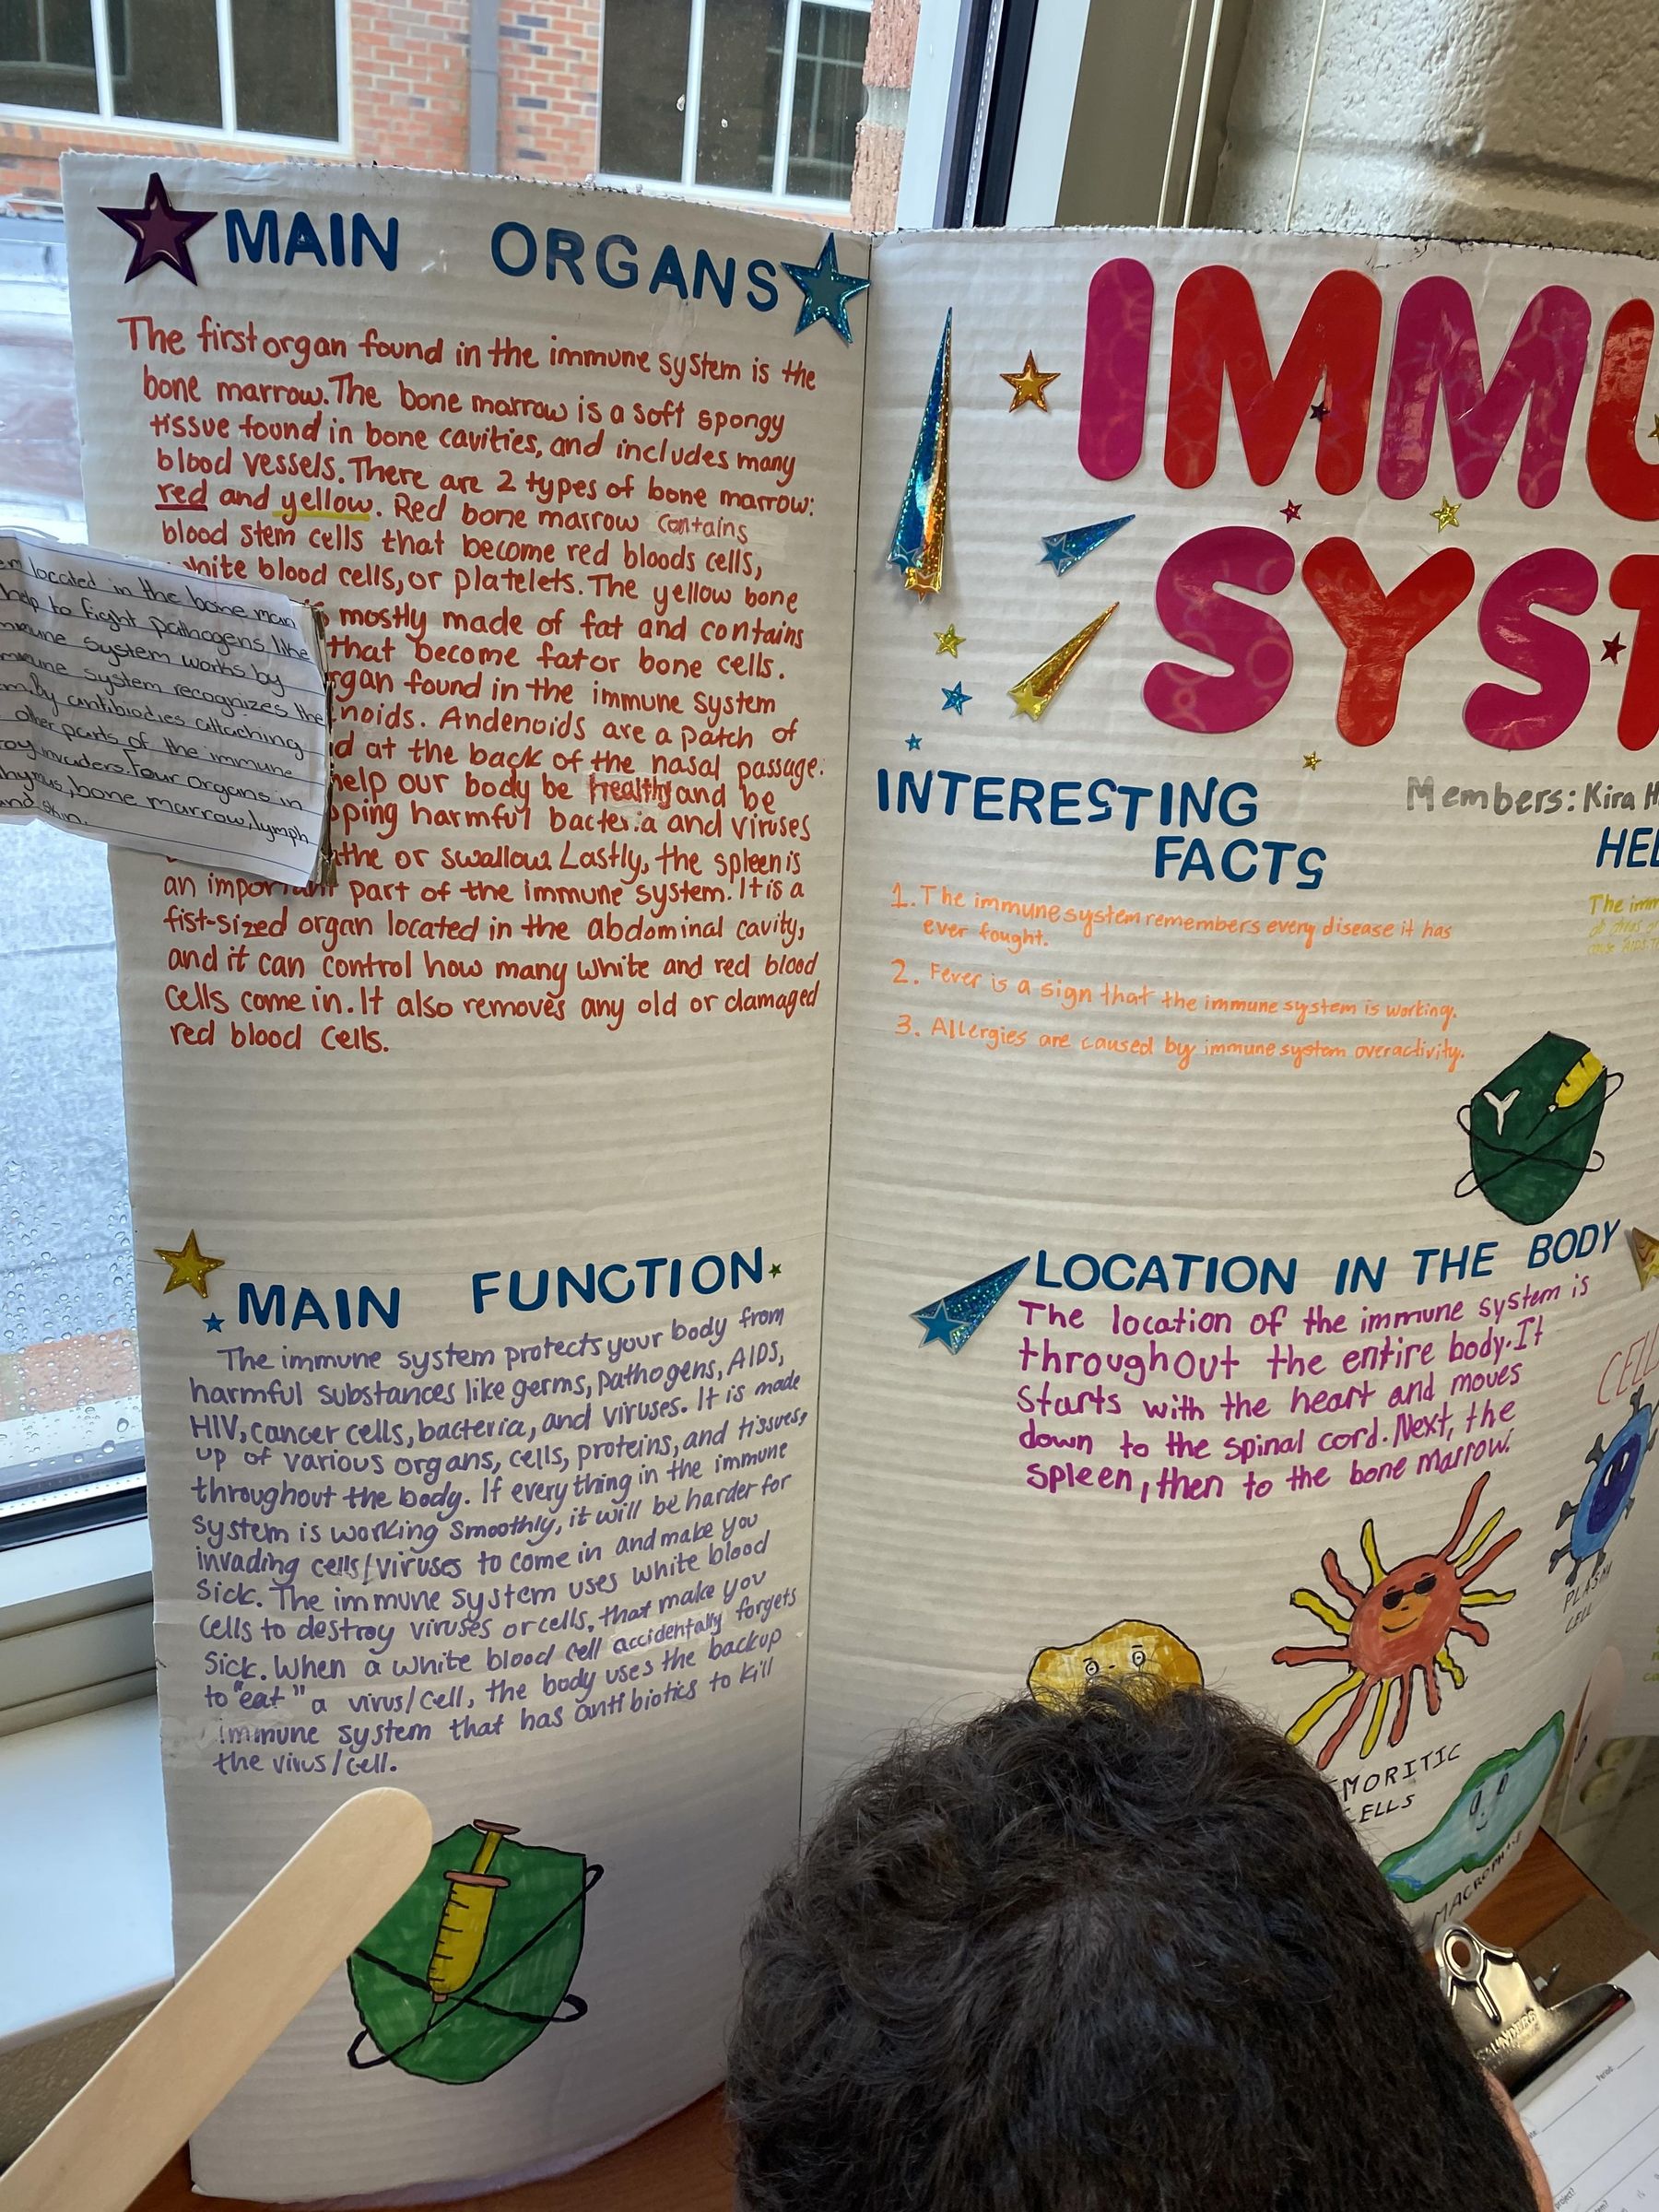 MAIN ORGANS
The first organ found in the immune system is the
bone marrow. The bone marrow is a soft spongy
tissue found in bone cavities, and includes many
blood vessels. There are 2 types of bone marrow:
red and yellow. Red bone marrow contains
blood stem cells that become red bloods cells,
white blood cells, or platelets. The yellow bone
mostly made of fat and contains
that become fat or bone cells.
found in the immune system
Andenoids are a patch of
at the back of the nasal passage.
help our body be healthy and be
harmful bacteria and viruses
or swallow. Lastly, the spleen is
an important part of the immune system. It is a
fist-sized organ located in the abdominal cavity,
and it can control how many white and red blood
cells come in. It also removes any old or damaged
red blood cells.
located in the bone marr
help to fight pathogens like
system works by
system recognizes the
by antibiodies attaching
other parts of the immune
invaders. Four organs in
bone marrow, lymph
and skin.
MAIN FUNCTION
The immune system protects your body from
harmful substances like germs, pathogens, AIDS,
HIV, cancer cells, bacteria, and viruses. It is made
up of various organs, cells, proteins, and tissues,
throughout the body. If everything in the immune
system is working smoothly, it will be harder for
invading cells/viruses to come in and make you
sick. The immune system uses white blood
cells to destroy viruses or cells, that make you
sick. When a white blood cell accidentally forgets
to "eat" a virus/cell, the body uses the backup
immune system that has antibiotics to kill
the virus/cell.
IMMU
SYST
Members: Kira H
INTERESTING
FACTS
1. The immune system remembers every disease it has
ever fought.
2. Fever is a sign that the immune system is working.
3. Allergies are caused by immune system overactivity.
HEL
The imm
LOCATION IN THE BODY
The location of the immune system is
throughout the entire body. It
starts with the heart and moves
down to the spinal cord. Next, the
spleen, then to the bone marrow.
CELL
PLASMA
CELL
MORITIC
ELLS
MACROPHAGE
Period: